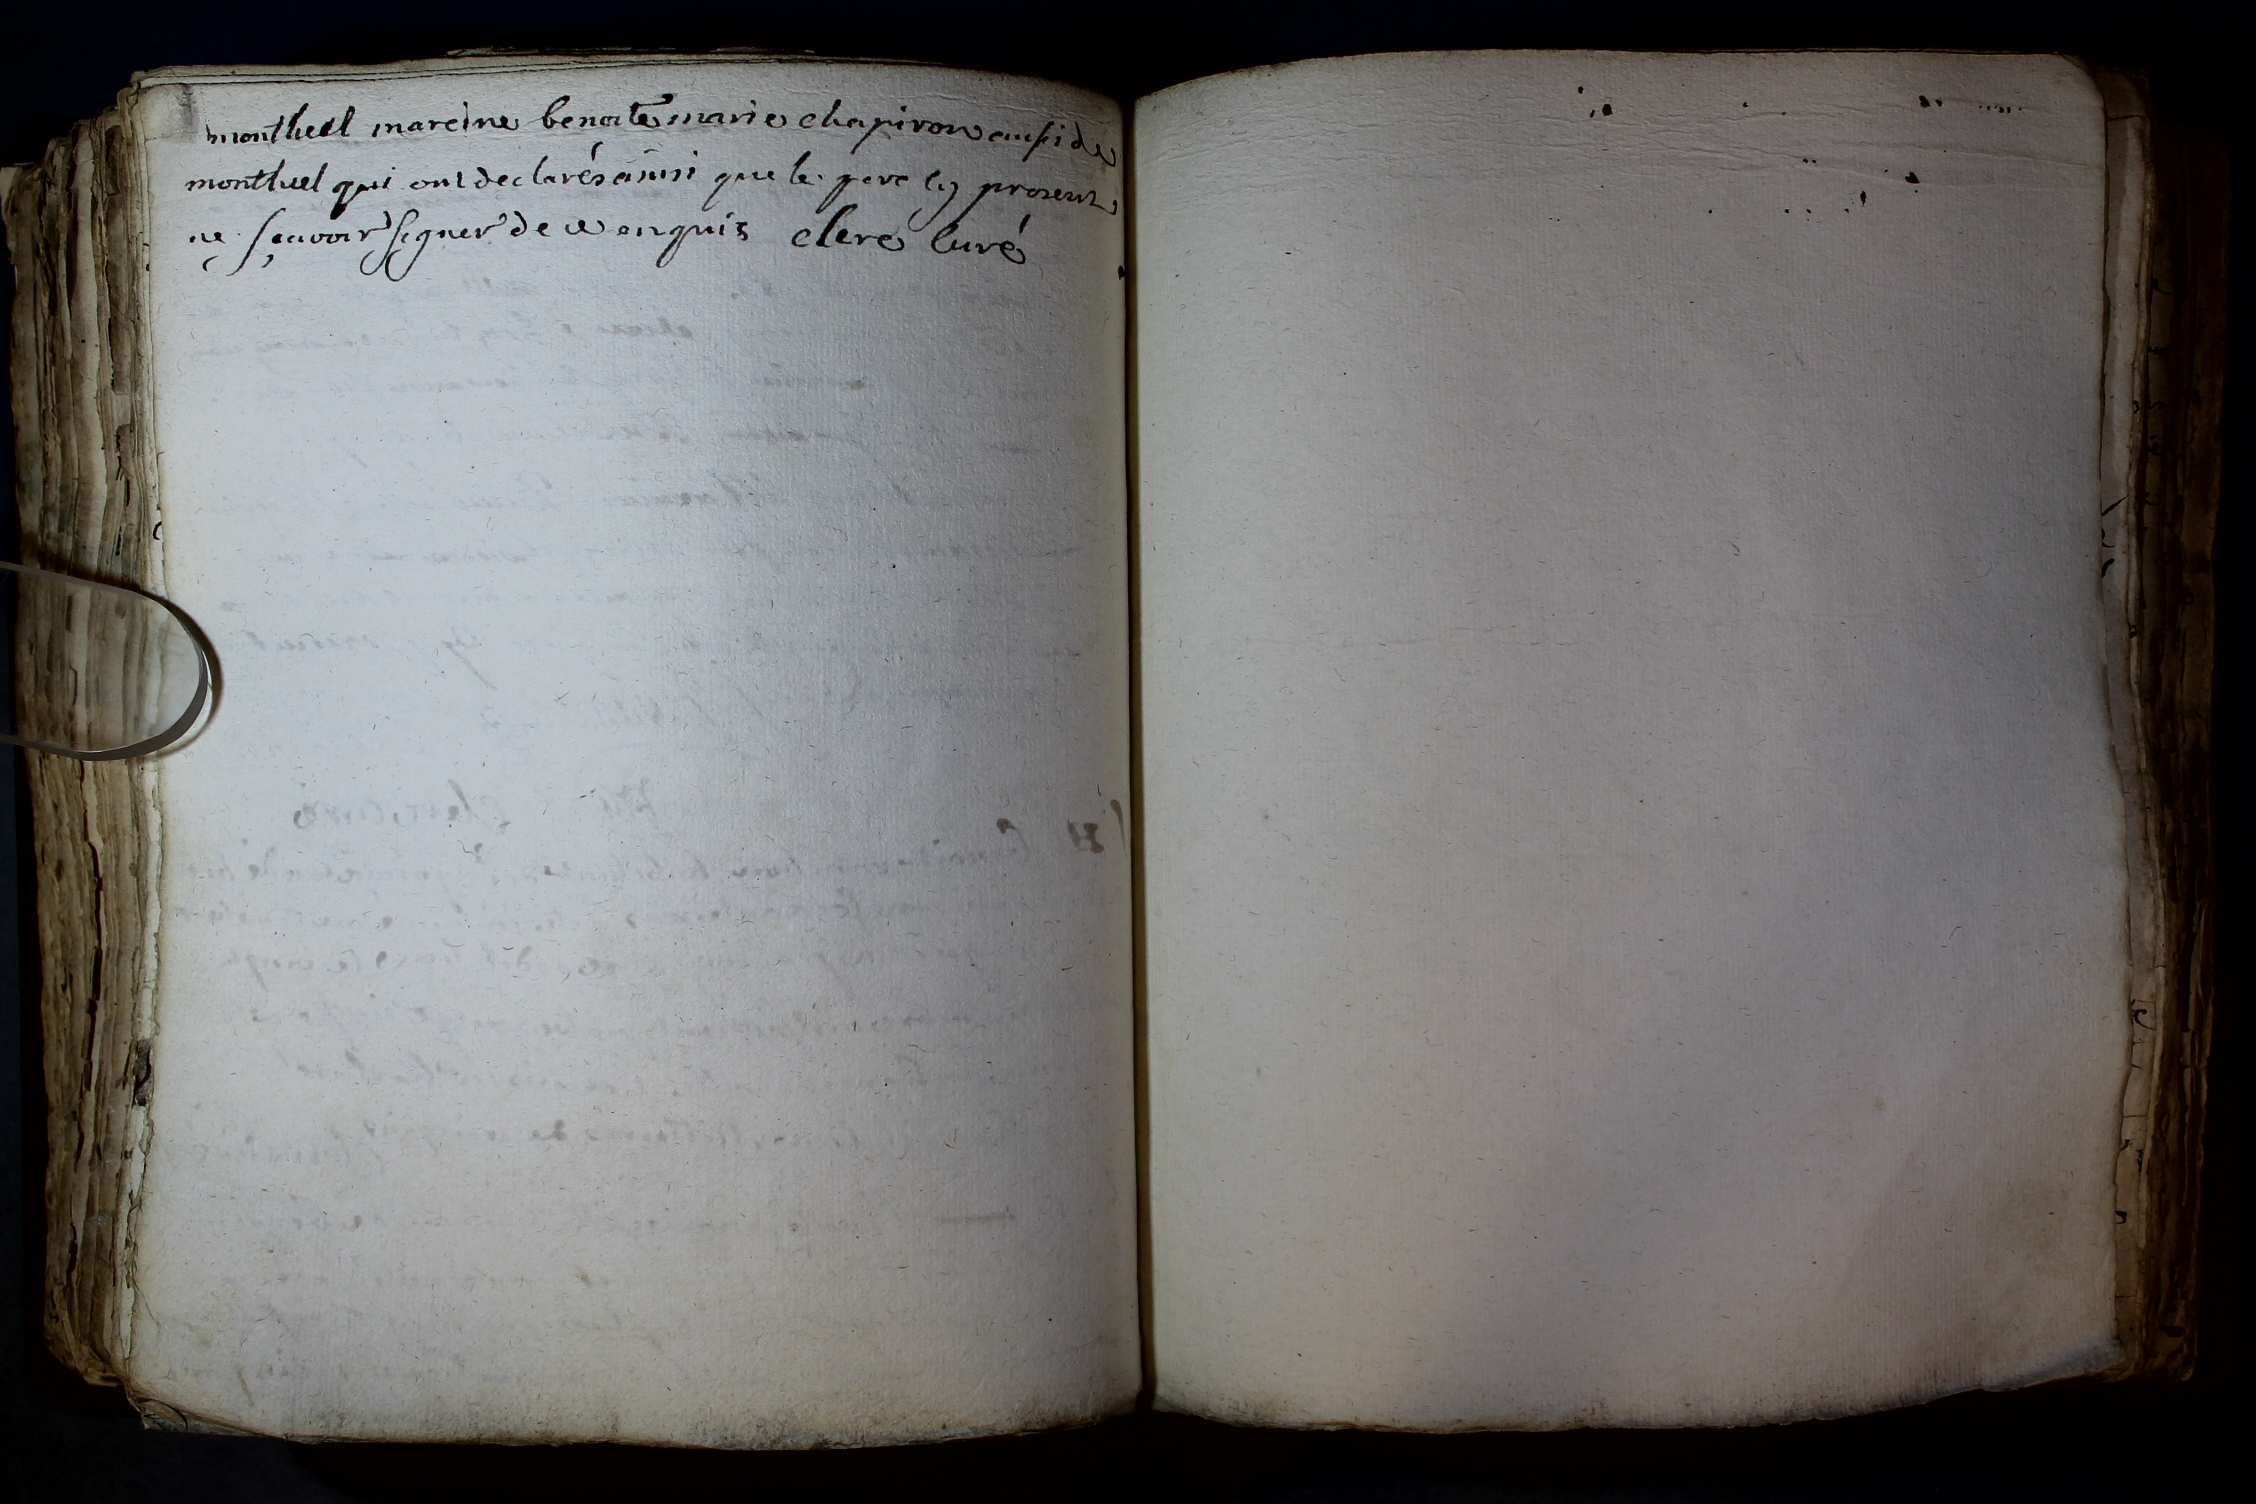 montluel mareine benoite marie chapiron aussi de
montluel qui ont declarés ainsi que le pere cy present
ne sçavoir signer de ce enquis clerc curé